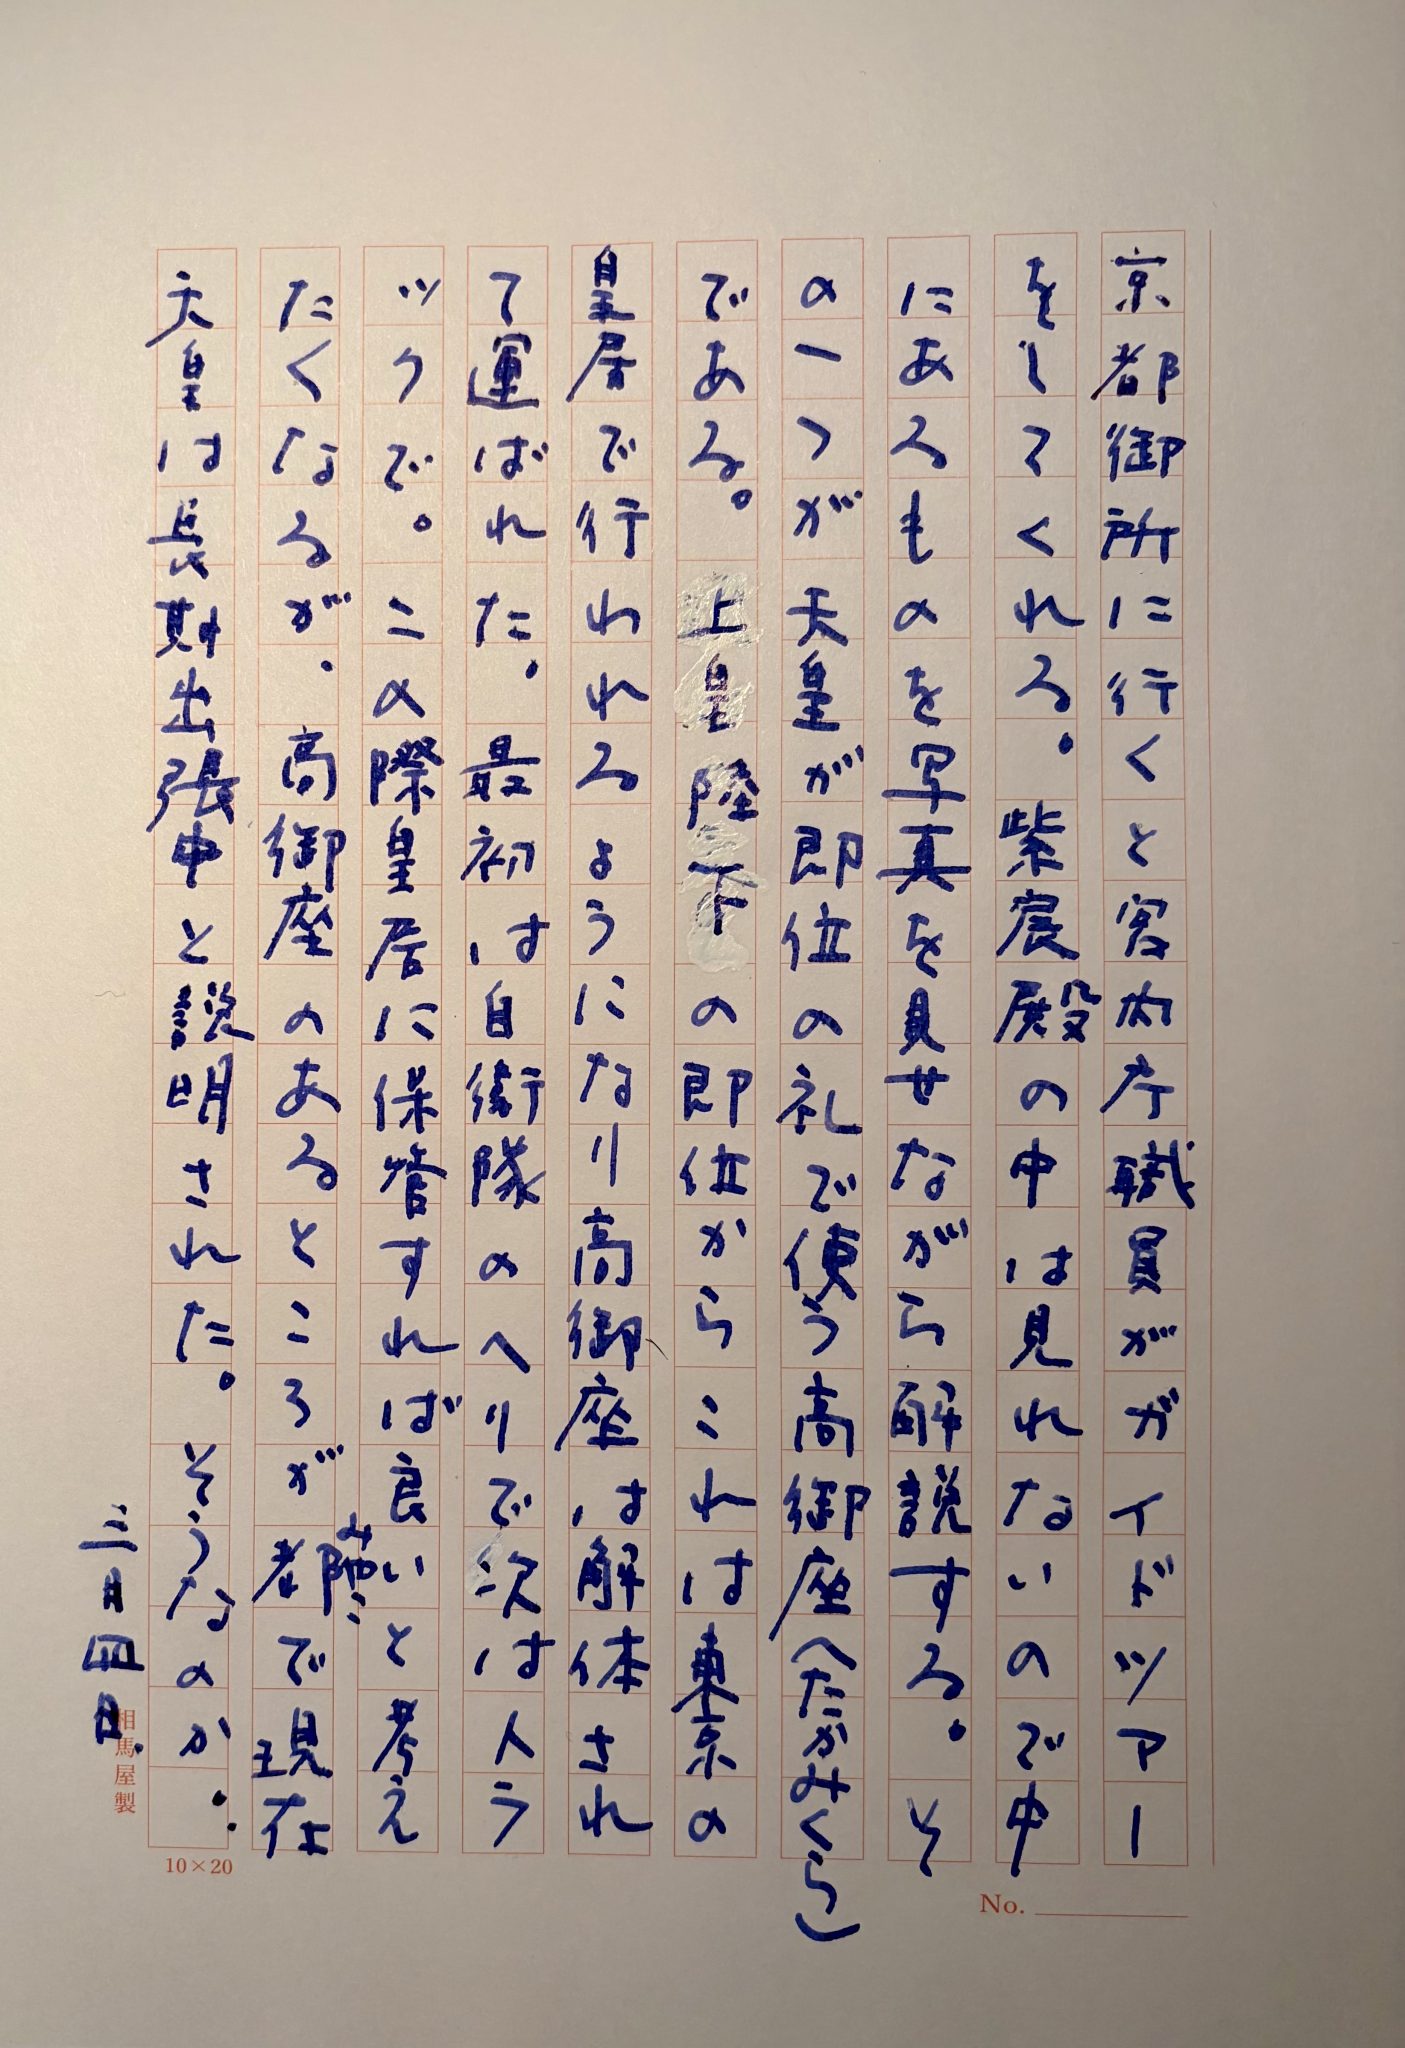 京都御所に行くと宮内庁職員がガイドツアー
をしてくれる。紫宸殿の中は見れないので中
にあるものを写真を見せながら解説する。そ
の一つが天皇が即位の礼で使う高御座(たかみくら)
である。上皇陛下の即位からこれは東京の
皇居で行われるようになり高御座は解体され
て運ばれた。最初は自衛隊のヘリで次は人ラ
ックで。この際皇居に保管すれば良いと考え
たくなるが、高御座のあるところが
みやこ
で現在
天皇は長期出張中と説明された。そうなのか。
三月四日.
相馬屋製
10×20
No.